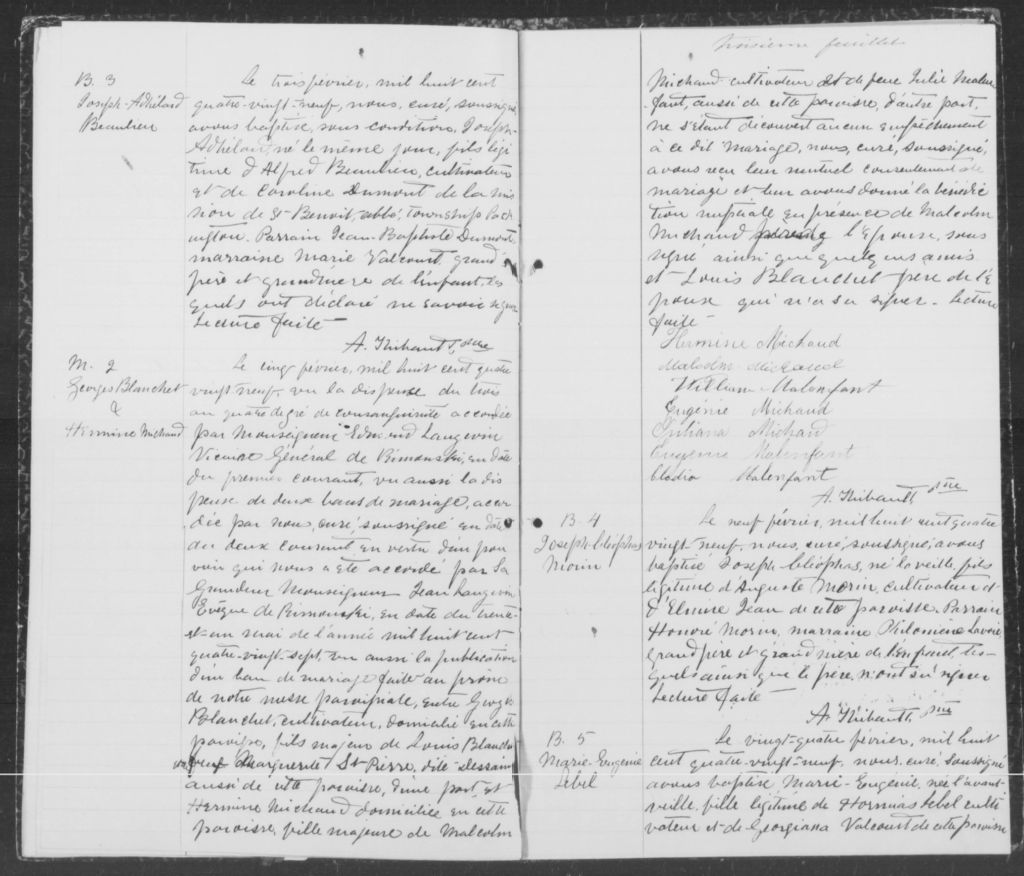 B. 3
Joseph-Adhéland
Beaulieu
Le trois février, mil huit cent
quatre-vingt-neuf, nous, curé, soussigné,
avons baptisé, sous condition, Joseph-
Adhéland, né le même jour, fils légi
time d'Alfred Beaulieu, cultivateur
et de Caroline Dumont de la mis
sion de St Benoit, abbé, Township Pack
ington. Parrain Jean-Baptiste Dumont,
marraine Marie Valcourt, grand
père et grandmère de l'enfant, les
quels ont déclaré ne savoir signer
Lecture faite
A. Thibault, Ptre
M. 2
Georges Blanchet
&
Hermine Michaud
Le cinq février, mil huit cent quatre
vingt-neuf, vu la dispense du trois
au quatre degré de consanguinité accordée
par Monseigneur Edmond Langevin
Vicaire Général de Rimouski, en date
du premier courant, vu aussi la dis
pense de deux bans de mariage, accor
dée par nous, curé, soussigné en date
du deux courant en vertu d'un pou
voir qui nous a été accordé par Sa
Grandeur Monseigneur Jean Langevin
Evêque de Rimouski, en date du trente
et-un mai de l'année mil huit cent
quatre-vingt-sept, vu aussi la publication
d'un ban de mariage faite au prône
de notre messe paroissiale, entre Georges
Blanchet, cultivateur, domicilié en cette
paroisse, fils majeur de Louis Blanchet
Marguerite St-Pierre, dite dessaint
aussi de cette paroisse, d'une part, et
Hermine Michaud domiciliée en cette
paroisse, fille majeure de Malcolm
troisième feuillet
Michaud cultivateur et de feue Julie Malen
fant, aussi de cette paroisse, d'autre part,
ne s'étant découvert aucun empêchement
à ce dit mariage, nous, curé, soussigné,
avons reçu leur mutuel consentement de
mariage et leur avons donné la bénédic
tion nuptiale en présence de Malcolm
Michaud l'Epouse, sous
signé ainsi que quelques amis
et Louis Blanchet père de l'é
poux qui n'a su signer. Lecture
faite
Hermine Michaud
Malcolm Michaud
William Malenfant
Eugénie Michaud
Juliana Michaud
Eugénie Malenfant
Clodia Malenfant
A. Thibault Ptre
B. 4
Joseph-Cléophas
Morin
Le neuf février, mil huit cent quatre
vingt-neuf, nous, curé, soussigné, avons
baptisé Joseph Cléophas, né la veille, fils
légitime d'Auguste Morin, cultivateur et
d'Elmire Jean de cette paroisse. Parrain
Honoré Morin, marraine Philomène Lavoie,
grand père et grand mère de l'enfant, les-
quels ainsi que le père, n'ont su signer
Lecture faite
A. Thibault, Ptre
B. 5
Marie-Eugénie
Lebel
Le vingt-quatre février, mil huit
cent quatre-vingt-neuf, nous, curé, soussigné
avons baptisé Marie-Eugénie, née l'avant-
veille, fille légitime de Hormias Lebel culti
vateur et de Georgiana Valcourt de cette paroisse